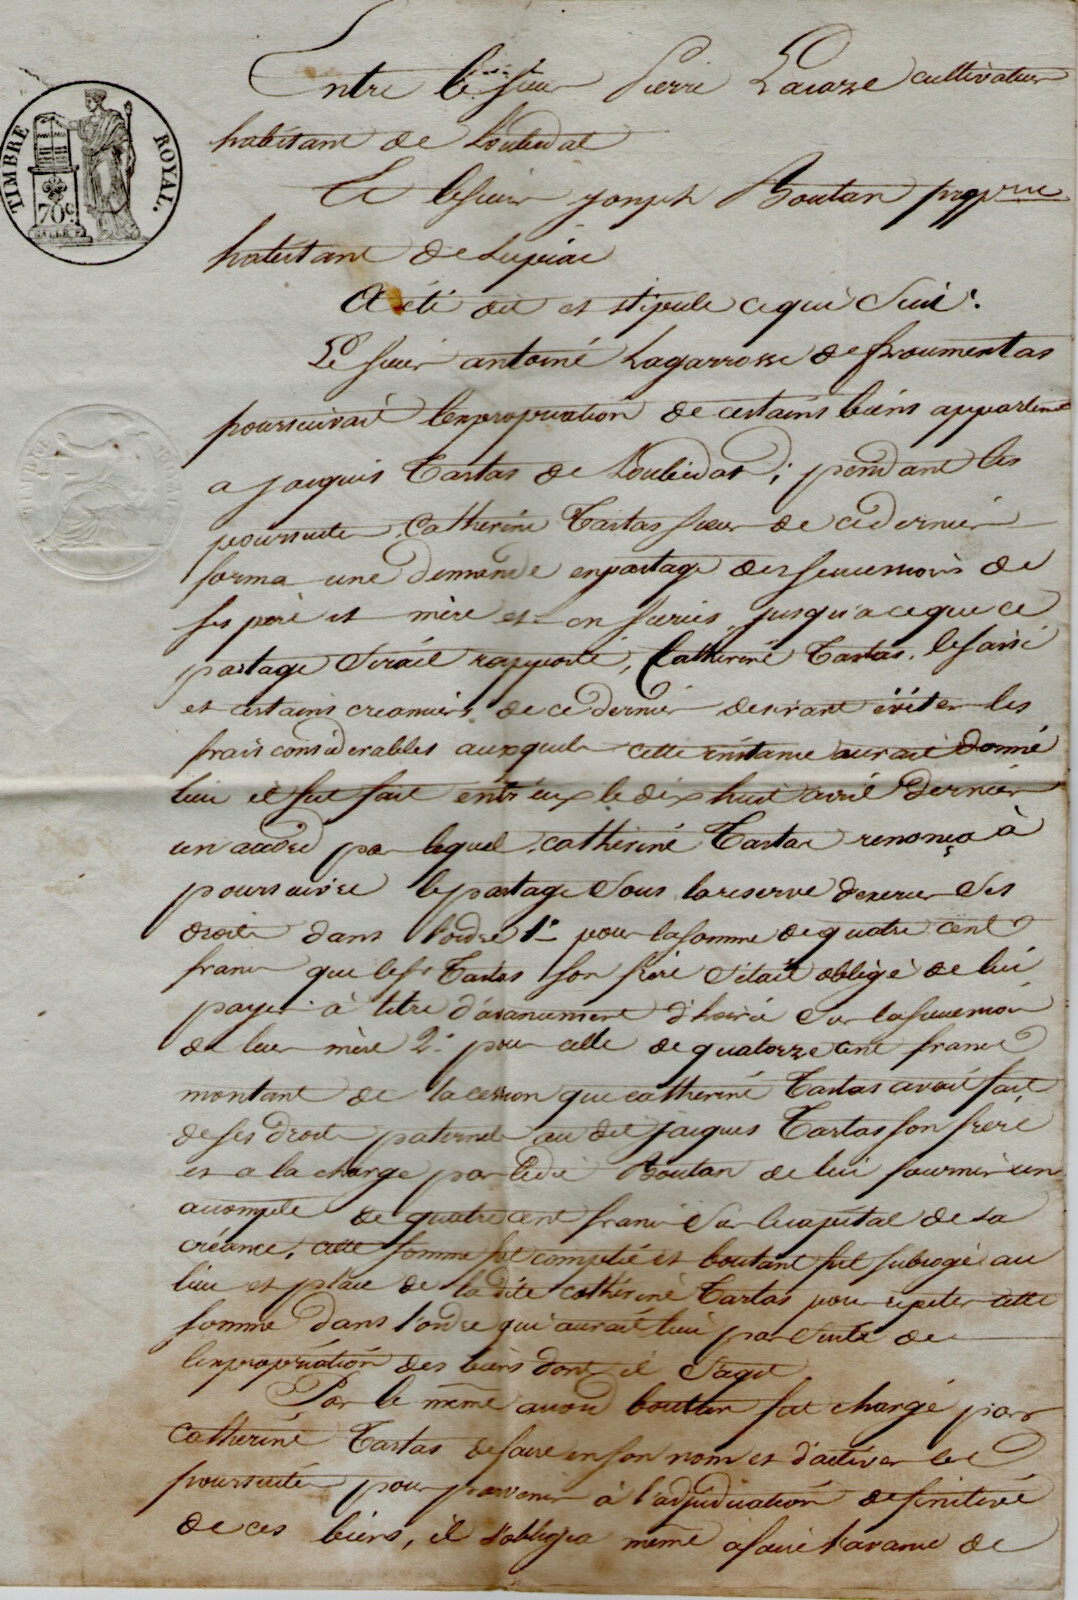 TIMBRE ROYAL.
70c
Entre le sieur Pierre cultivateur
habitant de Loubédat
Et le sieur Joseph Boutan propre
habitant de Lupiac
A été dit et stipulé ce qui suit.
Le sieur antoine Lagarrosse de froumentas
poursuivait lexpropriation de certains biens appartenant
a jacques Tartas de Loubédat; pendant les
poursuites Catherine Tartas sœur de ce dernier
forma une demande en partage des successions de
ses père et mère et on sursis jusqu'a ce que ce
partage serait rapporté, Catherine Tartas, le saisi
et certains creanciers de ce dernier desirant éviter les
frais considerables auxquels cette instance aurait donné
lieu il fut fait entr'eux le dix huit avril dernier
un accord par lequel catherine Tartas renonça à
poursuivre le partage sous la reserve dexercer ses
droits dans l'ordre 1° pour la somme de quatre cent
francs que le sr Tartas son frère s'était obligé de lui
payer à titre d'avancement d'hoirie sur la succession
de leur mère 2° pour celle de quatorze cent francs
montant de la cession que catherine Tartas avait fait
de ses droits paternels au dit jacques Tartas son frère
et a la charge par ledit Boutan de lui fournir un
acompte de quatre cent francs sur le capital de sa
créance, cette somme fut comptée et boutant fut subrogé au
lieu et place de la dite catherine Tartas pour répéter cette
somme dans l'ordre qui aurait lieu par suite de
lexpropriation des biens dont il s'agit
Par le même accord boutan fut chargé par
catherine Tartas de faire en son nom et d'activer les
poursuites pour parvenir à l'adjudication definitive
de ces biens, il s'obligea même à faire l'avance de